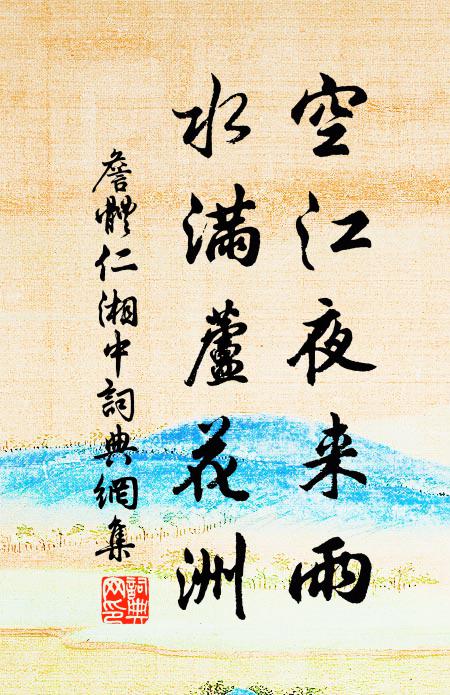 空江夜来雨
水滿蘆花洲
詹體仁湘中詞典網集
詞典